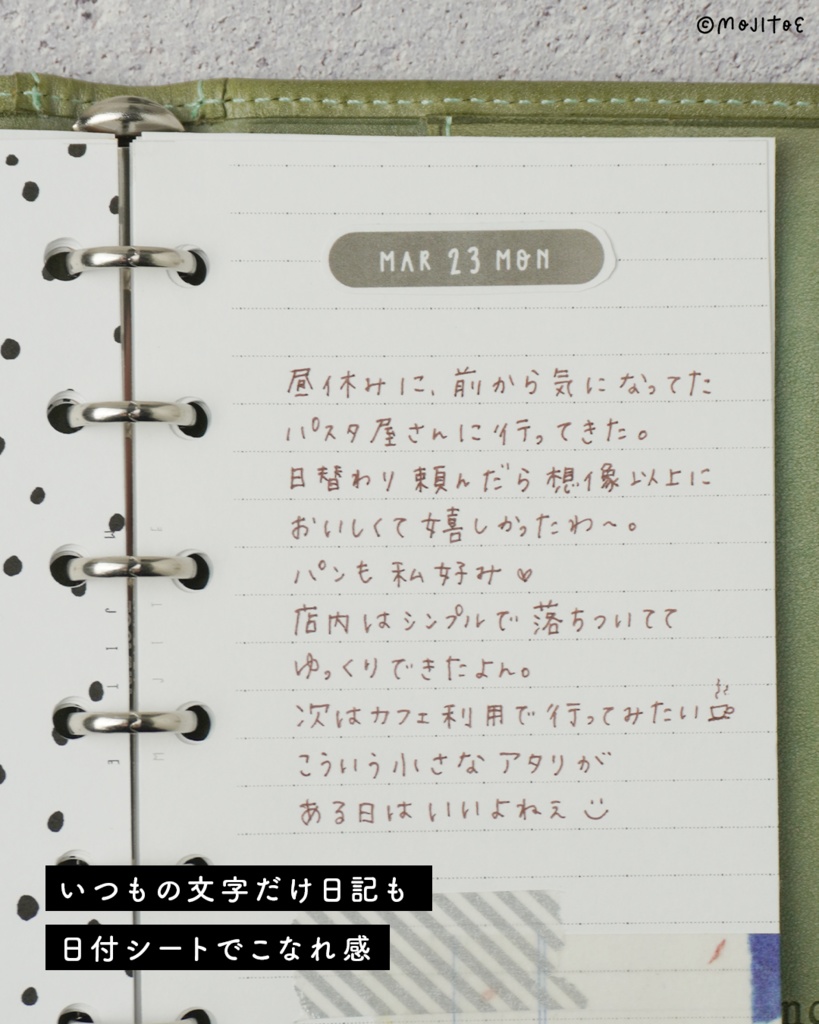 ©MOJITOE
MAR 23 MON
昼休みに、前から気になってた
パスタ屋さんに行ってきた。
日替わり頼んだら想像以上に
おいしくて嬉しかったわ〜。
パンも私好み♡
店内はシンプルで落ちついてて
ゆっくりできたよん。
次はカフェ利用で行ってみたい
こういう小さなアタリが
ある日はいいよねぇ
いつもの文字だけ日記も
日付シートでこなれ感